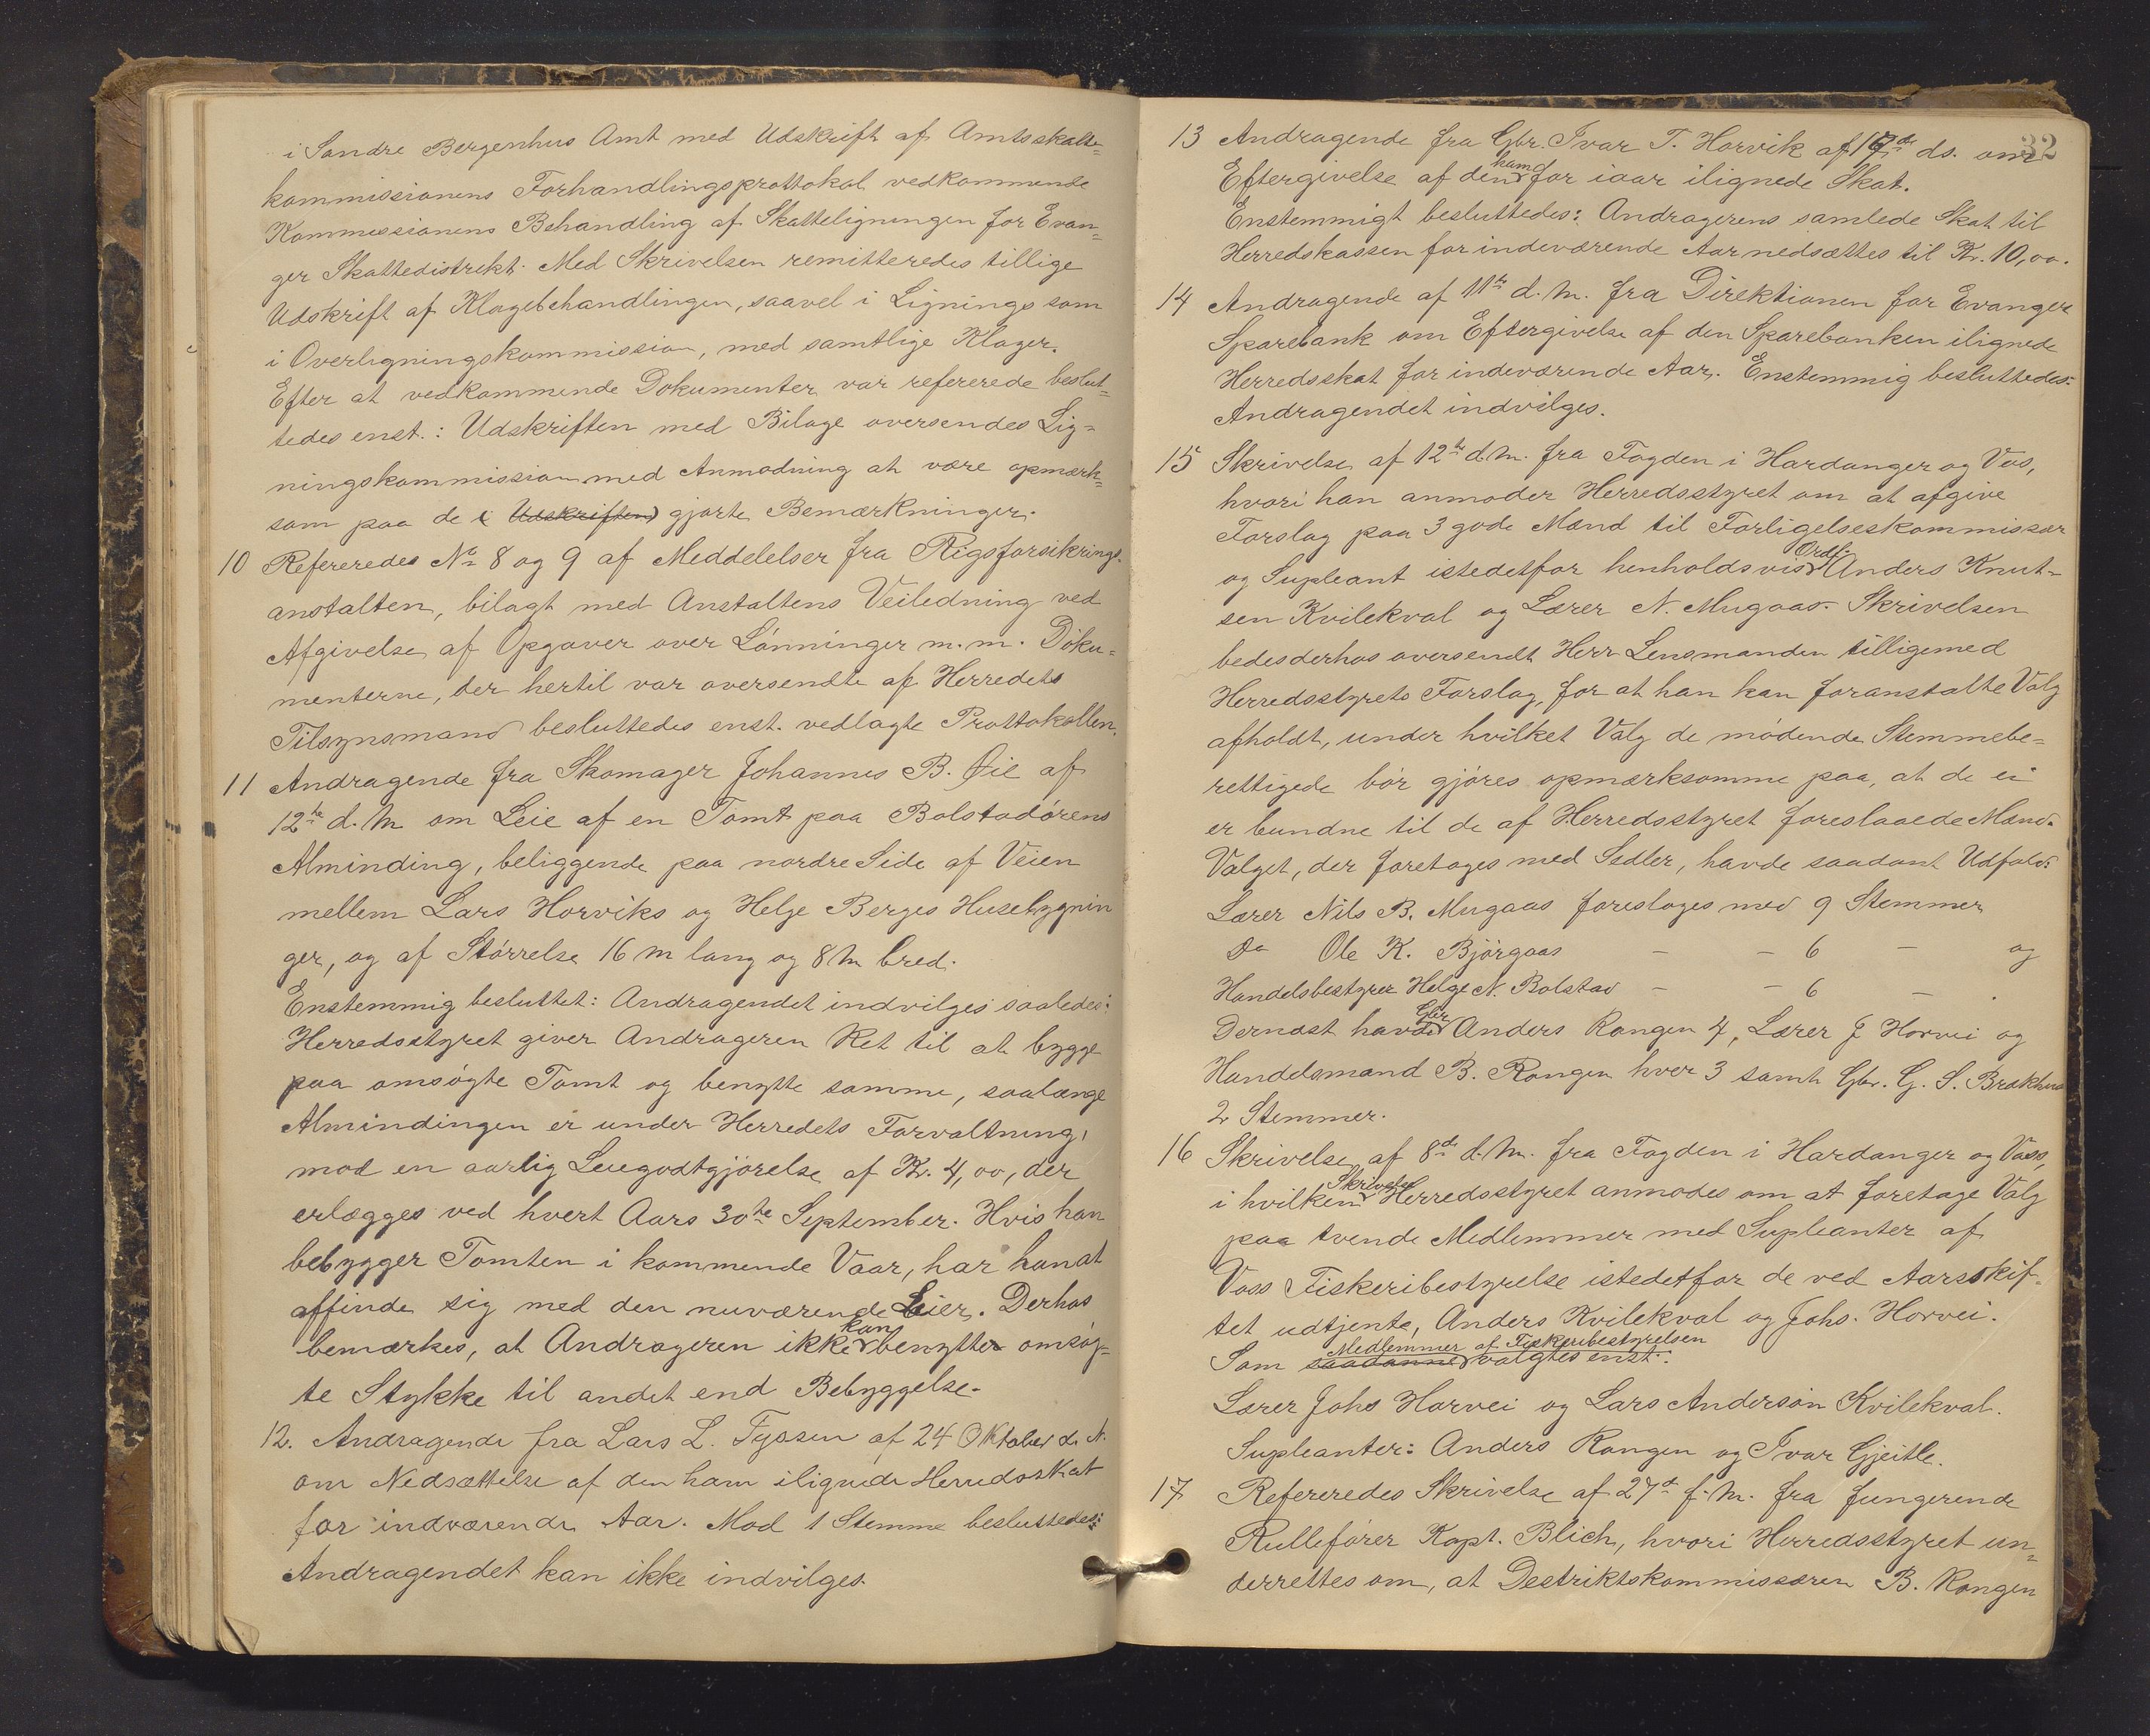 i Søndre Bergenhus Amt med Udskrift af Amtsskatte=
kommissionens Forhandlingsprottokol vedkommende
Kommissionens Behandling af Skatteligningen for Evan=
ger Skattedistrikt. Med Skrivelsen remitteredes tillige
Udskrift af Klagebehandlingen, saavel i Lignings som
i Overligningskommission, med samtlige Klager.
Efter at vedkommende Dokumenter var refererede beslut=
tedes enst.: Udskriften med Bilage oversendes Lig=
ningskommission med Anmodning at være opmærk=
som paa de (i Udskriften) gjorte Bemærkninger.
10 Refereredes No 8 og 9 af Meddelelser fra Rigsforsikrings-
anstalten, bilagt med Anstaltens Veiledning ved
Afgivelse af Opgaver over Lønninger m.m. Doku=
menterne, der hertil var oversendte af Herredets
Tilsynsmand besluttedes enst. vedlagte Prottokollen.
11 Andragende fra Skomager Johannes B. Øie af
12te d. M. om Leie af en Tomt paa Bolstadørens
Alminding, beliggende paa nordre Side af Veien
mellem Lars Horviks og Helge Berges Husebygnin
ger, og af Størrelse 16 m lang og 8 m bred.
Enstemmig besluttet: Andragendet indvilges saaledes:
Herredsstyret giver Andrageren Ret til at bygge
paa omsøgte Tomt og benytte samme, saalænge
Almindingen er under Herredets Forvaltning,
mod en aarlig Leiegodtgjørelse af Kr. 4,00, der
erlægges ved hvert Aars 30te September. Hvis han
bebygger Tomten i kommende Vaar, har han at
affinde sig med den nuværende Leier. Derhos
bemærkes, at Andrageren ikke kan benytte omsøg=
te Stykke til andet end Bebyggelse.
12. Andragende fra Lars L. Fyssen af 24 Oktober d. A.
om Nedsættelse af den ham ilignede Herredsskat
for indværende Aar. Mod 1 Stemme besluttedes:
Andragendet kan ikke indvilges.
32
13 Andragende fra Gbr. Ivar T. Horvik af ds. om
Eftergivelse af den ham for iaar ilignede Skat.
Enstemmigt besluttedes: Andragerens samlede Skat til
Herredskassen for indeværende Aar nedsættes til Kr. 10,00.
14 Andragende af 11te d. M. fra Direktionen for Evanger
Sparebank om Eftergivelse af den Sparebanken ilignede
Herredsskat for indeværende Aar. Enstemmig besluttedes:
Andragendet indvilges.
15 Skrivelse af 12te d. M. fra Fogden i Hardanger og Vos,
hvori han anmoder Herredsstyret om at afgive
Forslag paa 3 gode Mænd til Forligelseskommissær
og Supleant istedetfor henholdsvis Ordf. Anders Knut-
sen Kvilekval og Lærer N. Mugaas. Skrivelsen
bedes derhos oversendt Herr Lensmanden tilligemed
Herredsstyrets Forslag, for at han kan foranstalte Valg
afholdt, under hvilket Valg de mødende Stemmebe=
rettigede bør gjøres opmærksomme paa, at de ei
er bundne til de af Herredsstyret foreslaaede Mænd.
Valget, der foretoges med Sedler, havde saadant Udfald:
Lærer Nils B. Mugaas foresloges med 9 Stemmer
Do Ole K. Bjørgaas – – 6 – og
Handelsbestyrer Helge N. Bolstad – – 6 – .
Dernæst havde Gbr. Anders Rongen 4, Lærer J Horvei og
Handelsmand B. Rongen hver 3 samt Gbr. G. S. Brækhus
2 Stemmer.
16 Skrivelse af 8de d. M. fra Fogden i Hardanger og Voss,
i hvilken Skrivelse Herredsstyret anmodes om at foretage Valg
paa tvende Medlemmer med Supleanter af
Voss Fiskeribestyrelse istedetfor de ved Aarsskif-
tet udtjente, Anders Kvilekval og Johs. Horvei.
Som saadanne Medlemmer af Fiskeribestyrelsen valgtes enst.:
Lærer Johs Horvei og Lars Anderson Kvilekval.
Supleanter: Anders Rongen og Ivar Gjeitle.
17 Refereredes Skrivelse af 27de f. M. fra fungerende
Rullefører Kapt. Blich, hvori Herredsstyret un=
derrettes om, at Destriktskommissæren B. Rongen